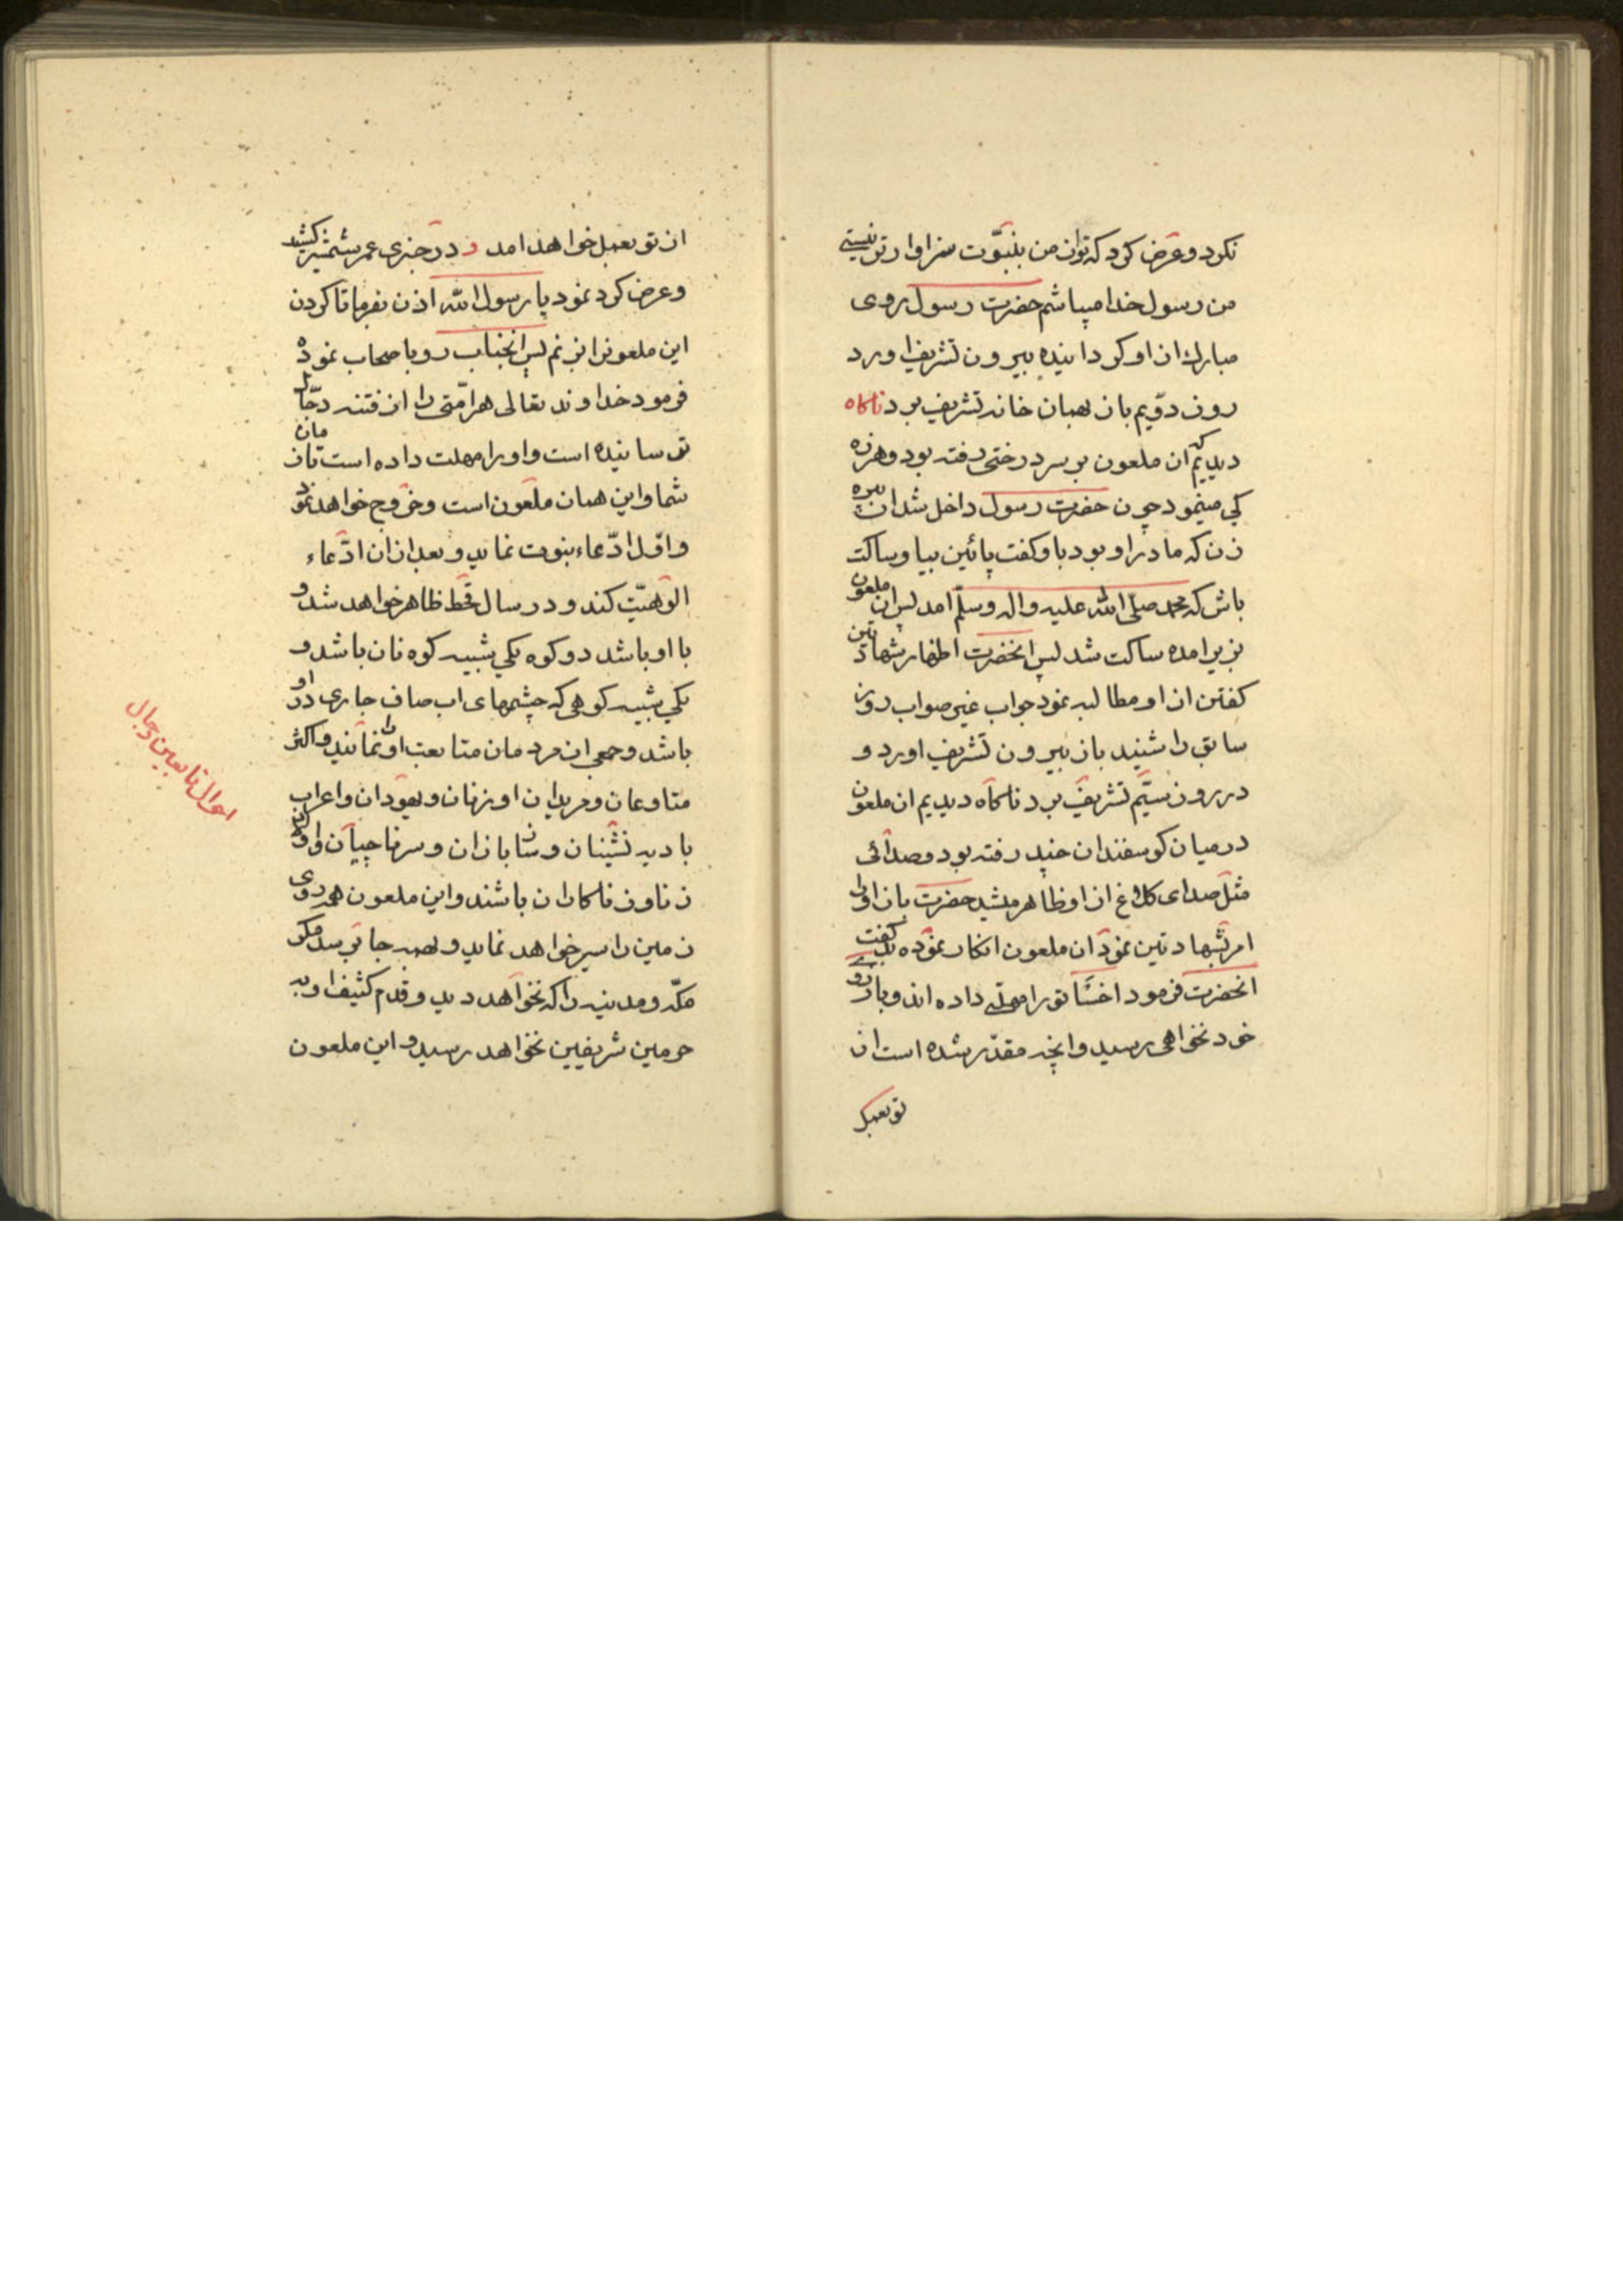 نکرد و عرض کرد که تو از من بنبوّت سزاوارتر نیستی
من رسول خدا میباشم حضرت رسول روی
مبارک از او کردانیده بیرون تشریف اورد
روز دوّیم باز بهمان خانه تشریف برد ناکاه
دیدیم که ان ملعون بر سر درختی رفته بود و هرزه
کی مینمود چون حضرت رسول داخل شد ان پیره
زن که مادر او بود باو کفت پائین بیا و ساکت
باش که محمد صلّی الله علیه و اله و سلّم امد پس ان ملعون
بزیر امده ساکت شد پس انحضرت اظهار شهادتین
کفتن از او مطالبه نمود جواب غیر صواب روز
سابق را شنید باز بیرون تشریف اورد و
در روز سیّم تشریف برد ناکاه دیدیم ان ملعون
در میان کوسفندان چند رفته بود و صدائی
مثل صدای کلاغ از او ظاهر میشد حضرت باز او را
امر بشهادتین نمود ان ملعون انکار نموده بد کفت
انحضرت فرمود اخسّا تو را مهلتی داده اند و بارزو
خود نخواهی رسید و انچه مقدّر شده است از
تو بعمل
از تو بعمل خواهد امد و در خبری عمر شمشیر کشید
و عرض کرد نمود یا رسول الله اذن بفرما تا کردن
این ملعونرا بزنم پس انجناب رو باصحاب نموده
فرمود خداوند تعالی هر امّتی را از فتنه دجّال
ترسانیده است و او را مهلت داده است تا زمان
شما و این همان ملعون است و خروج خواهد نمود
و اوّل ادّعاء نبوت نماید و بعد از ان ادّعاء
الوهیّت کند و در سال قحط ظاهر خواهد شد و
با او باشد دو کوه یکی شبیه کوه نان باشد و
یکی شبیه کوهی که چشمهای اب صاف جاری در او
باشد و جمعی از مردمان متابعت او را نمایند و اکثر
متاوعان و مریدان او زنان و یهودان و اعراب
بادیه نشینان و سازبازان و سرناچیان و اولاد
زنا و زناکاران باشند و این ملعون همه روی
زمین را سیر خواهد نماید و بهمه جا برسد مکر
مکّه و مدینه را که نخواهد دید و قدم کثیف او به
حرمین شریفین نخواهد رسید و این ملعون
احوال تابعین دجال